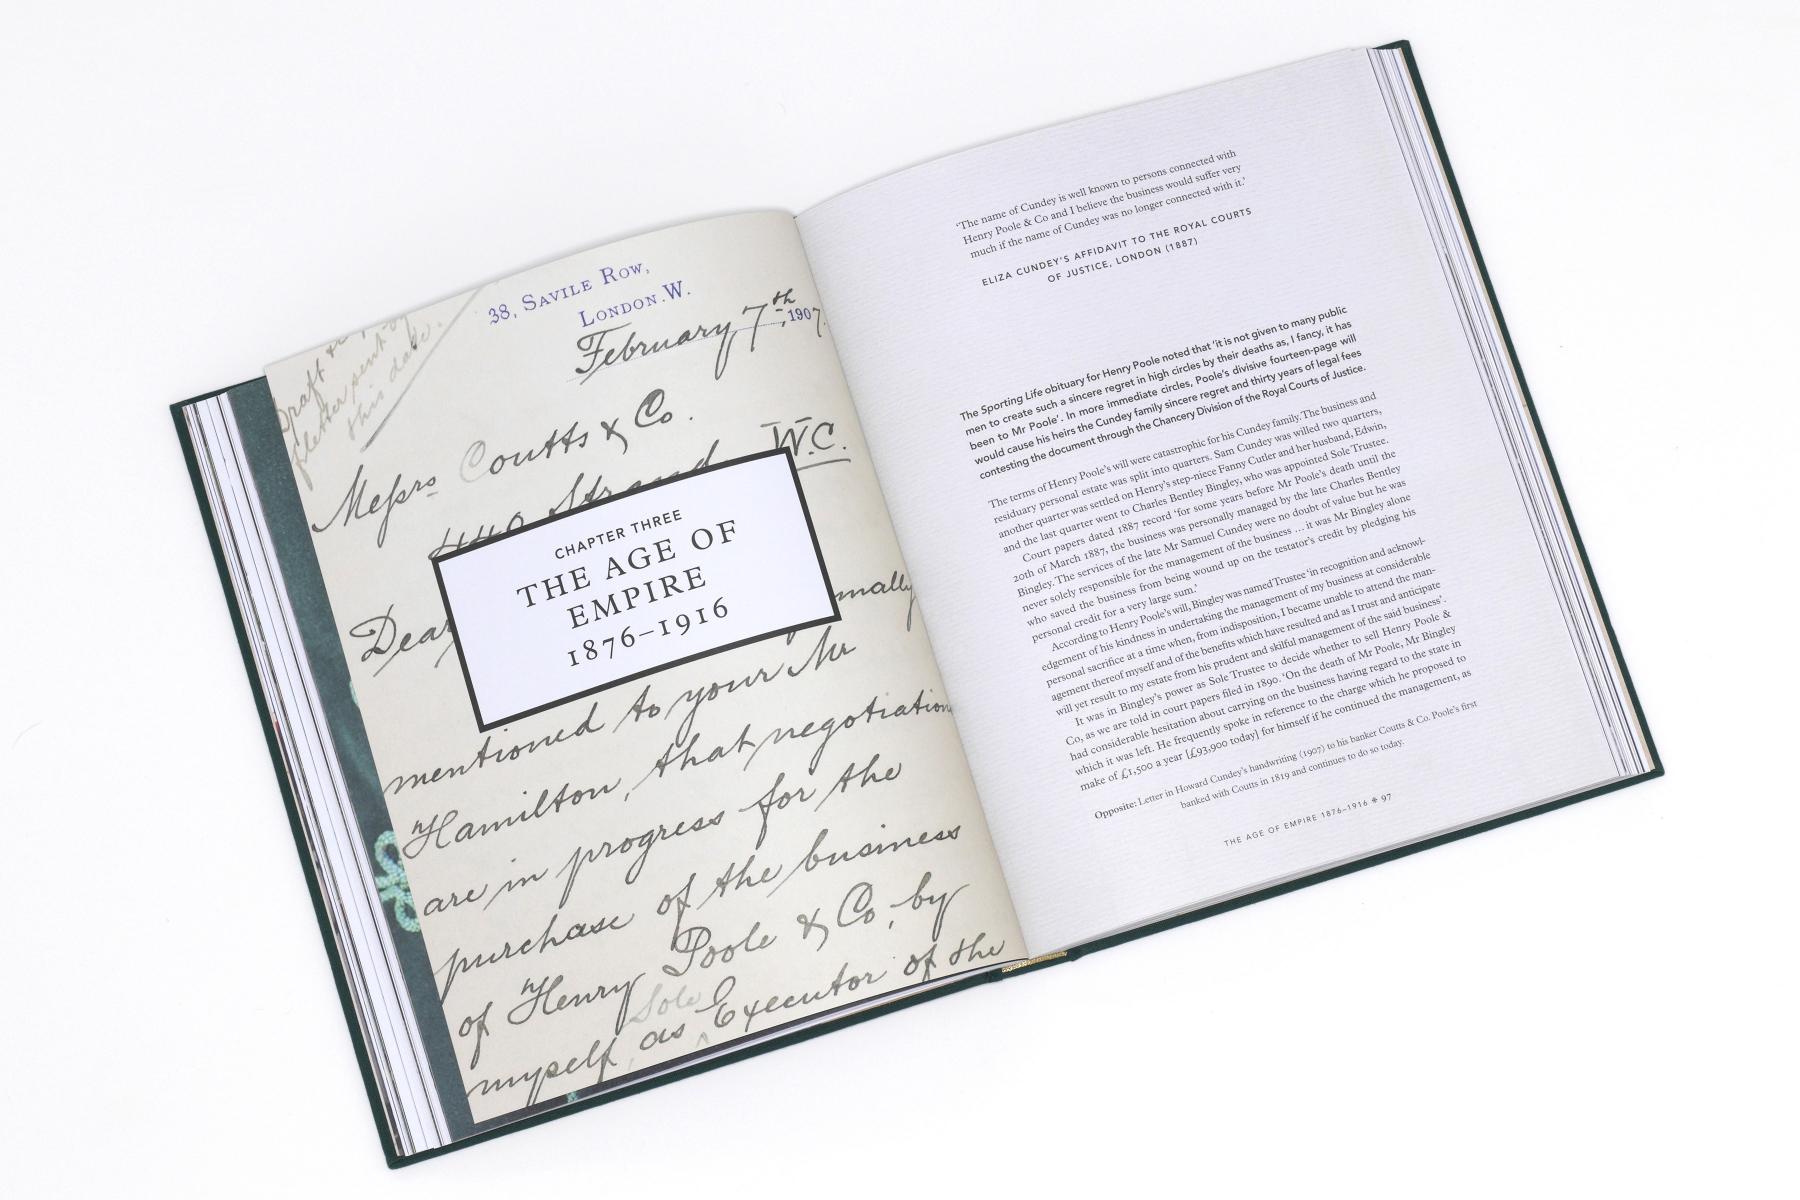 Draft
letter sent
this date.
38, SAVILE ROW,
LONDON.W.
February 7th, 1907.
Messrs Coutts & Co.
440 Strand W.C.
Dear
mentioned to your Mr
Hamilton, that negotiations
are in progress for the
purchase of the business
of Henry Poole & Co, by
Sole
myself, as Executor of the
CHAPTER THREE
THE AGE OF
EMPIRE
1876–1916
'The name of Cundey is well known to persons connected with
Henry Poole & Co and I believe the business would suffer very
much if the name of Cundey was no longer connected with it.'
ELIZA CUNDEY'S AFFIDAVIT TO THE ROYAL COURTS
OF JUSTICE, LONDON (1887)
The Sporting Life obituary for Henry Poole noted that 'it is not given to many public
men to create such a sincere regret in high circles by their deaths as, I fancy, it has
been to Mr Poole'. In more immediate circles, Poole's divisive fourteen-page will
would cause his heirs the Cundey family sincere regret and thirty years of legal fees
contesting the document through the Chancery Division of the Royal Courts of Justice.
The terms of Henry Poole's will were catastrophic for his Cundey family. The business and
residuary personal estate was split into quarters. Sam Cundey was willed two quarters,
another quarter was settled on Henry's step-niece Fanny Cutler and her husband, Edwin,
and the last quarter went to Charles Bentley Bingley, who was appointed Sole Trustee.
Court papers dated 1887 record 'for some years before Mr Poole's death until the
20th of March 1887, the business was personally managed by the late Charles Bentley
Bingley. The services of the late Mr Samuel Cundey were no doubt of value but he was
never solely responsible for the management of the business … it was Mr Bingley alone
who saved the business from being wound up on the testator's credit by pledging his
personal credit for a very large sum.'
According to Henry Poole's will, Bingley was named Trustee 'in recognition and acknowl-
edgement of his kindness in undertaking the management of my business at considerable
personal sacrifice at a time when, from indisposition, I became unable to attend the man-
agement thereof myself and of the benefits which have resulted and as I trust and anticipate
will yet result to my estate from his prudent and skilful management of the said business'.
It was in Bingley's power as Sole Trustee to decide whether to sell Henry Poole &
Co, as we are told in court papers filed in 1890. 'On the death of Mr Poole, Mr Bingley
had considerable hesitation about carrying on the business having regard to the state in
which it was left. He frequently spoke in reference to the charge which he proposed to
make of £1,500 a year [£93,900 today] for himself if he continued the management, as
Opposite: Letter in Howard Cundey's handwriting (1907) to his banker Coutts & Co. Poole's first
banked with Coutts in 1819 and continues to do so today.
THE AGE OF EMPIRE 1876–1916 ❋ 97